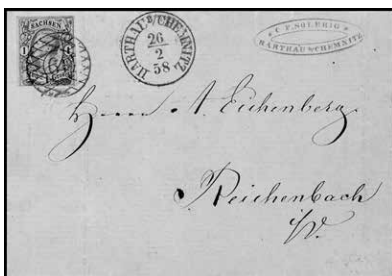 SACHSEN
1 1
HARTHAU B/CHEMNITZ
26
2
58
C. F. SOLBRIG
HARTHAU B/CHEMNITZ
Herrn A. Eichenberg
Reichenbach
i/V.